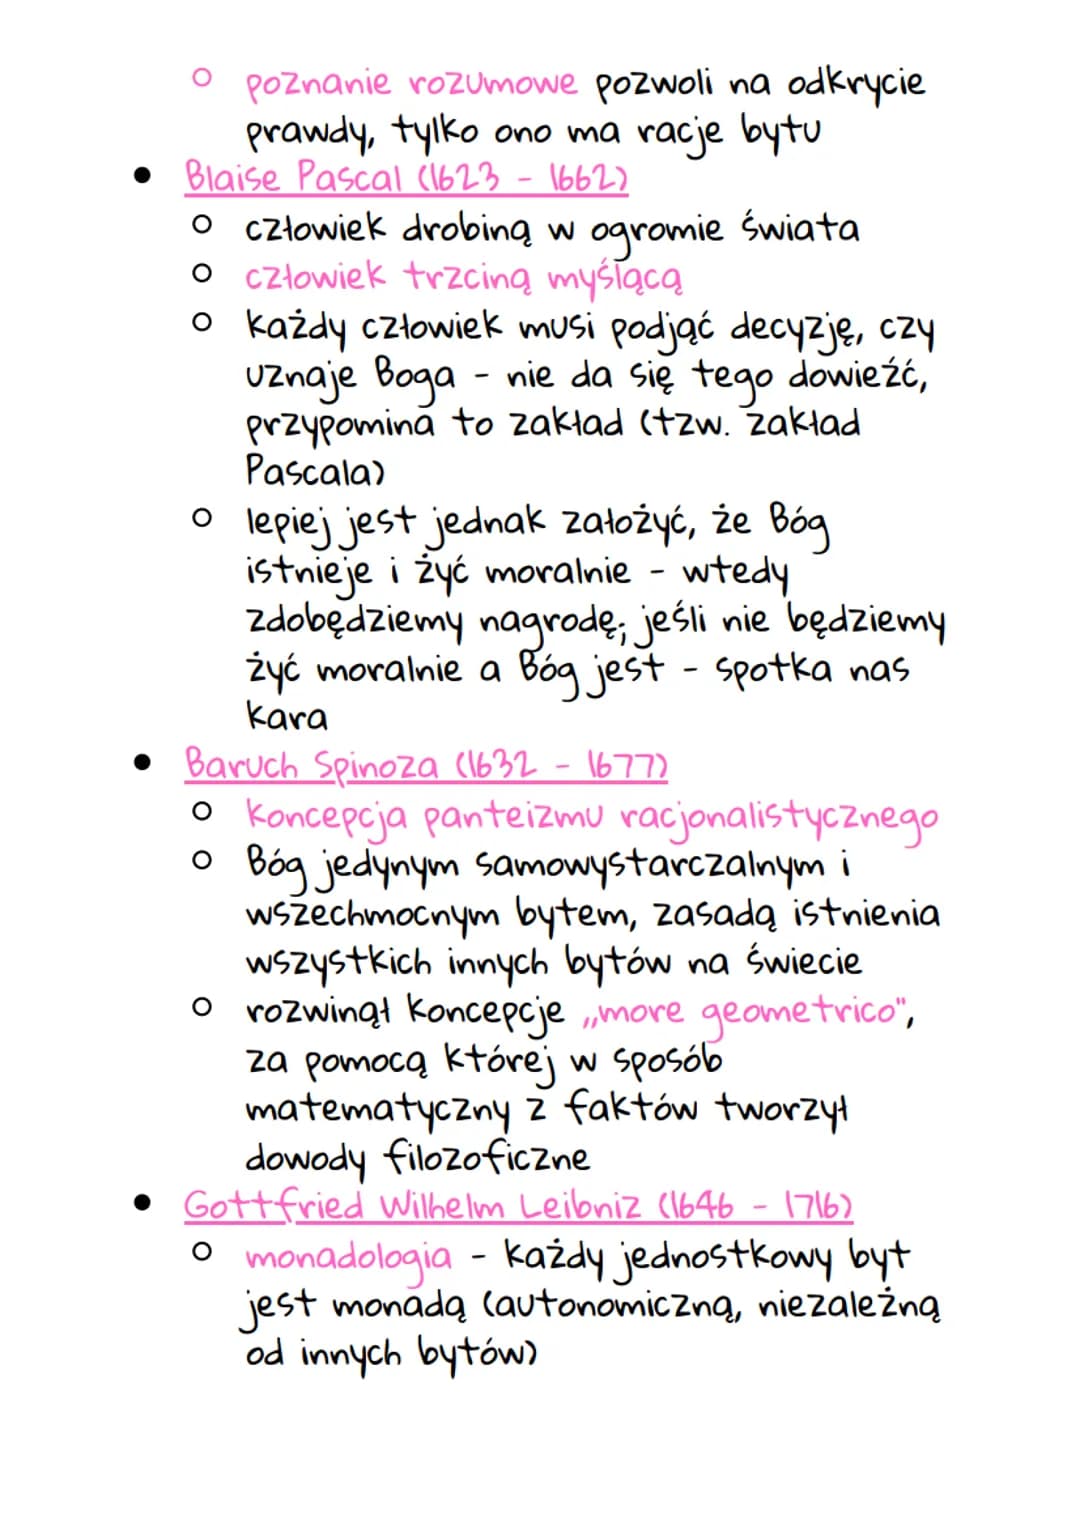 ○ poznanie rozumowe pozwoli na odkrycie
prawdy, tylko ono ma racje bytu
• Blaise Pascal (1623 - 1662)
○ człowiek drobiną w ogromie świata
○ człowiek trzciną myślącą
○ każdy człowiek musi podjąć decyzję, czy
uznaje Boga - nie da się tego dowieźć,
przypomina to zakład (tzw. zakład
Pascala)
○ lepiej jest jednak założyć, że Bóg
istnieje i żyć moralnie - wtedy
zdobędziemy nagrodę; jeśli nie będziemy
żyć moralnie a Bóg jest - spotka nas
kara
• Baruch Spinoza (1632 - 1677)
○ koncepcja panteizmu racjonalistycznego
○ Bóg jedynym samowystarczalnym i
wszechmocnym bytem, zasadą istnienia
wszystkich innych bytów na świecie
○ rozwinął koncepcje „more geometrico",
za pomocą której w sposób
matematyczny z faktów tworzył
dowody filozoficzne
• Gottfried Wilhelm Leibniz (1646 - 1716)
○ monadologia - każdy jednostkowy byt
jest monadą (autonomiczną, niezależną
od innych bytów)